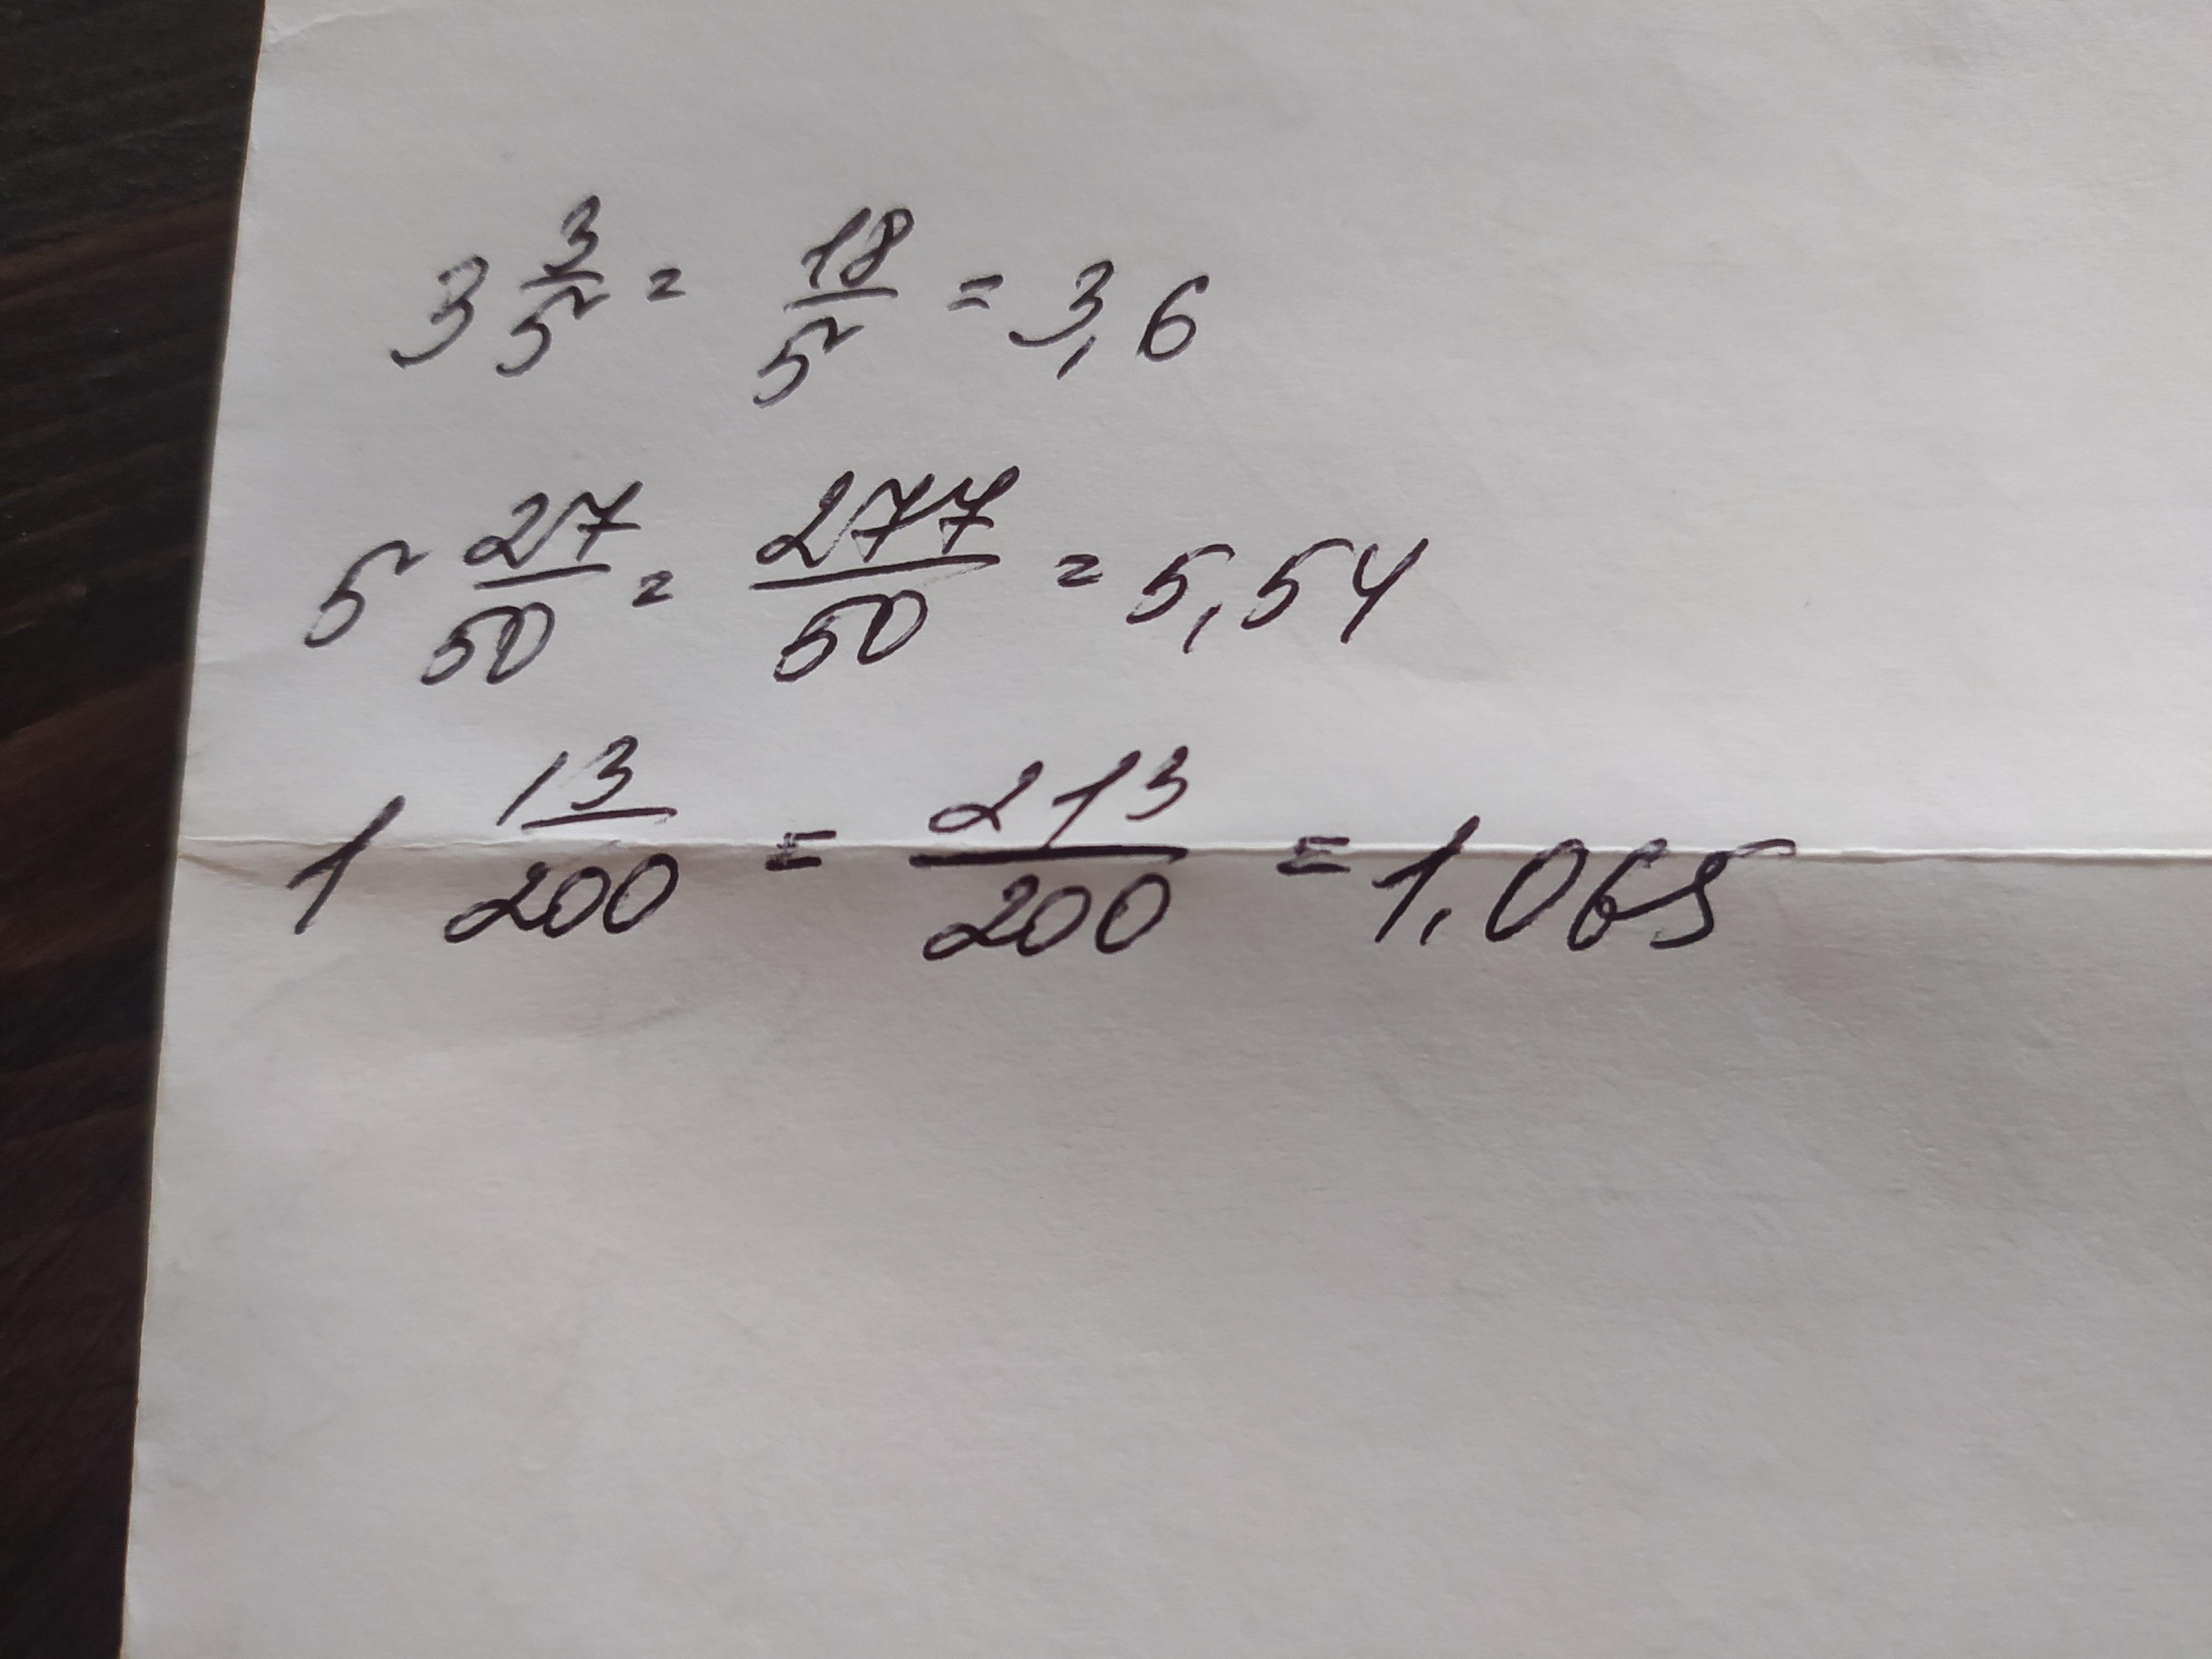 3 3/5 = 18/5 = 3,6
5 27/50 = 277/50 = 5,54
1 13/200 = 213/200 = 1,065